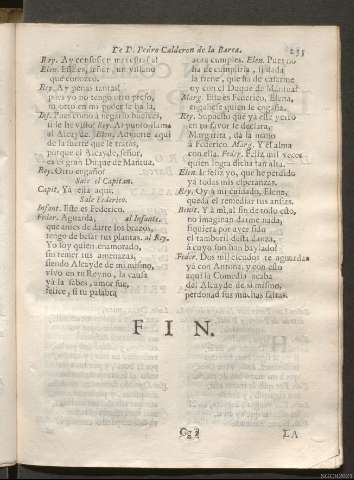 De D. Pedro Calderon de la Barca. 235
Rey. Ay
Elen. Este es, señor, un villano
que conozco.
Rey. Ay penas tantas!
pues yo no tengo otro preso,
ni otro en mi poder se ha la,
Inf. Pues como à negarlo buelves,
si le he visto? Rey. Al punto llama
al Alcayde. Elen. Advierte aqui
de la suerte que le tratas,
porque el Alcayde, señor,
es el gran Duque de Mantua.
Rey. Otro engaño?
Sale el Capitan.
Capit. Ya està aqui.
Sale Federico.
Infant. Este es Federico.
Feder. Aguarda, al Infante.
que antes de darte los brazos,
tengo de besar tus plantas. al Rey.
Yo soy quien enamorado,
sin temer tus amenazas,
siendo Alcayde de mi mismo,
vivo en tu Reyno, la causa
ya la sabes, amor fue,
felice, si tu palabra
acra cumples. Elen. Pues no
ha de cumplirla, si dada
la tiene, que es de casarme
oy con el Duque de Mantua?
Marg. Este es Federico, Elena,
engañese quien se engaña.
Rey. Supuesto que ya este yerro
en su favor se declara,
Margarita, dà la mano
à Federico. Marg. Y el alma
con ella. Feder. Feliz mil veces
quien logra dicha tan alta.
Elen. Infeliz yo, que he perdido
ya todas mis esperanzas.
Rey. Oy à mi cuidado, Elena,
queda el remediar tus ansias.
Benit. Y à mì, al fin de todo esto,
no imaginan darme nada,
siquiera por aver sido
el tamboril desta danza,
à cuyo son han baylado?
Feder. Dos mil escudos te aguardan
ya con Antona, y con esto
aqui la Comedia acaba
del Alcayde de sì mismo,
perdonad sus muchas faltas.
FIN.
Gg 2 LA